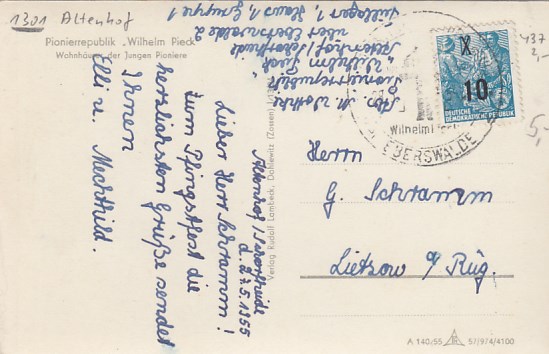 1301 Altenhof
Pionierrepublik „Wilhelm Pieck"
Wohnhäuser der Jungen Pioniere
Abs. M.
Pionierrepublik
"Wilhelm Pieck"
Altenhof/Schorfheide
über Eberswalde 2
Zeltlager 1, Haus 1, Gruppe 1
Altenhof/Schorfheide
d. 27.5.1955
Lieber Herr Schramm!
Zum Pfingstfest die
herzlichsten Grüße sendet
Ihnen
Elli u. Mechthild.
Verlag Rudolf Lambeck, Dahlewitz (Zossen)
X
10
DEUTSCHE
DEMOKRATISCHE REPUBLIK
Wilhelm
EBERSWALDE
437
2,-
5,
Herrn
G. Schramm
Lietzow a/ Rüg.
A 140/55
57/974/4100